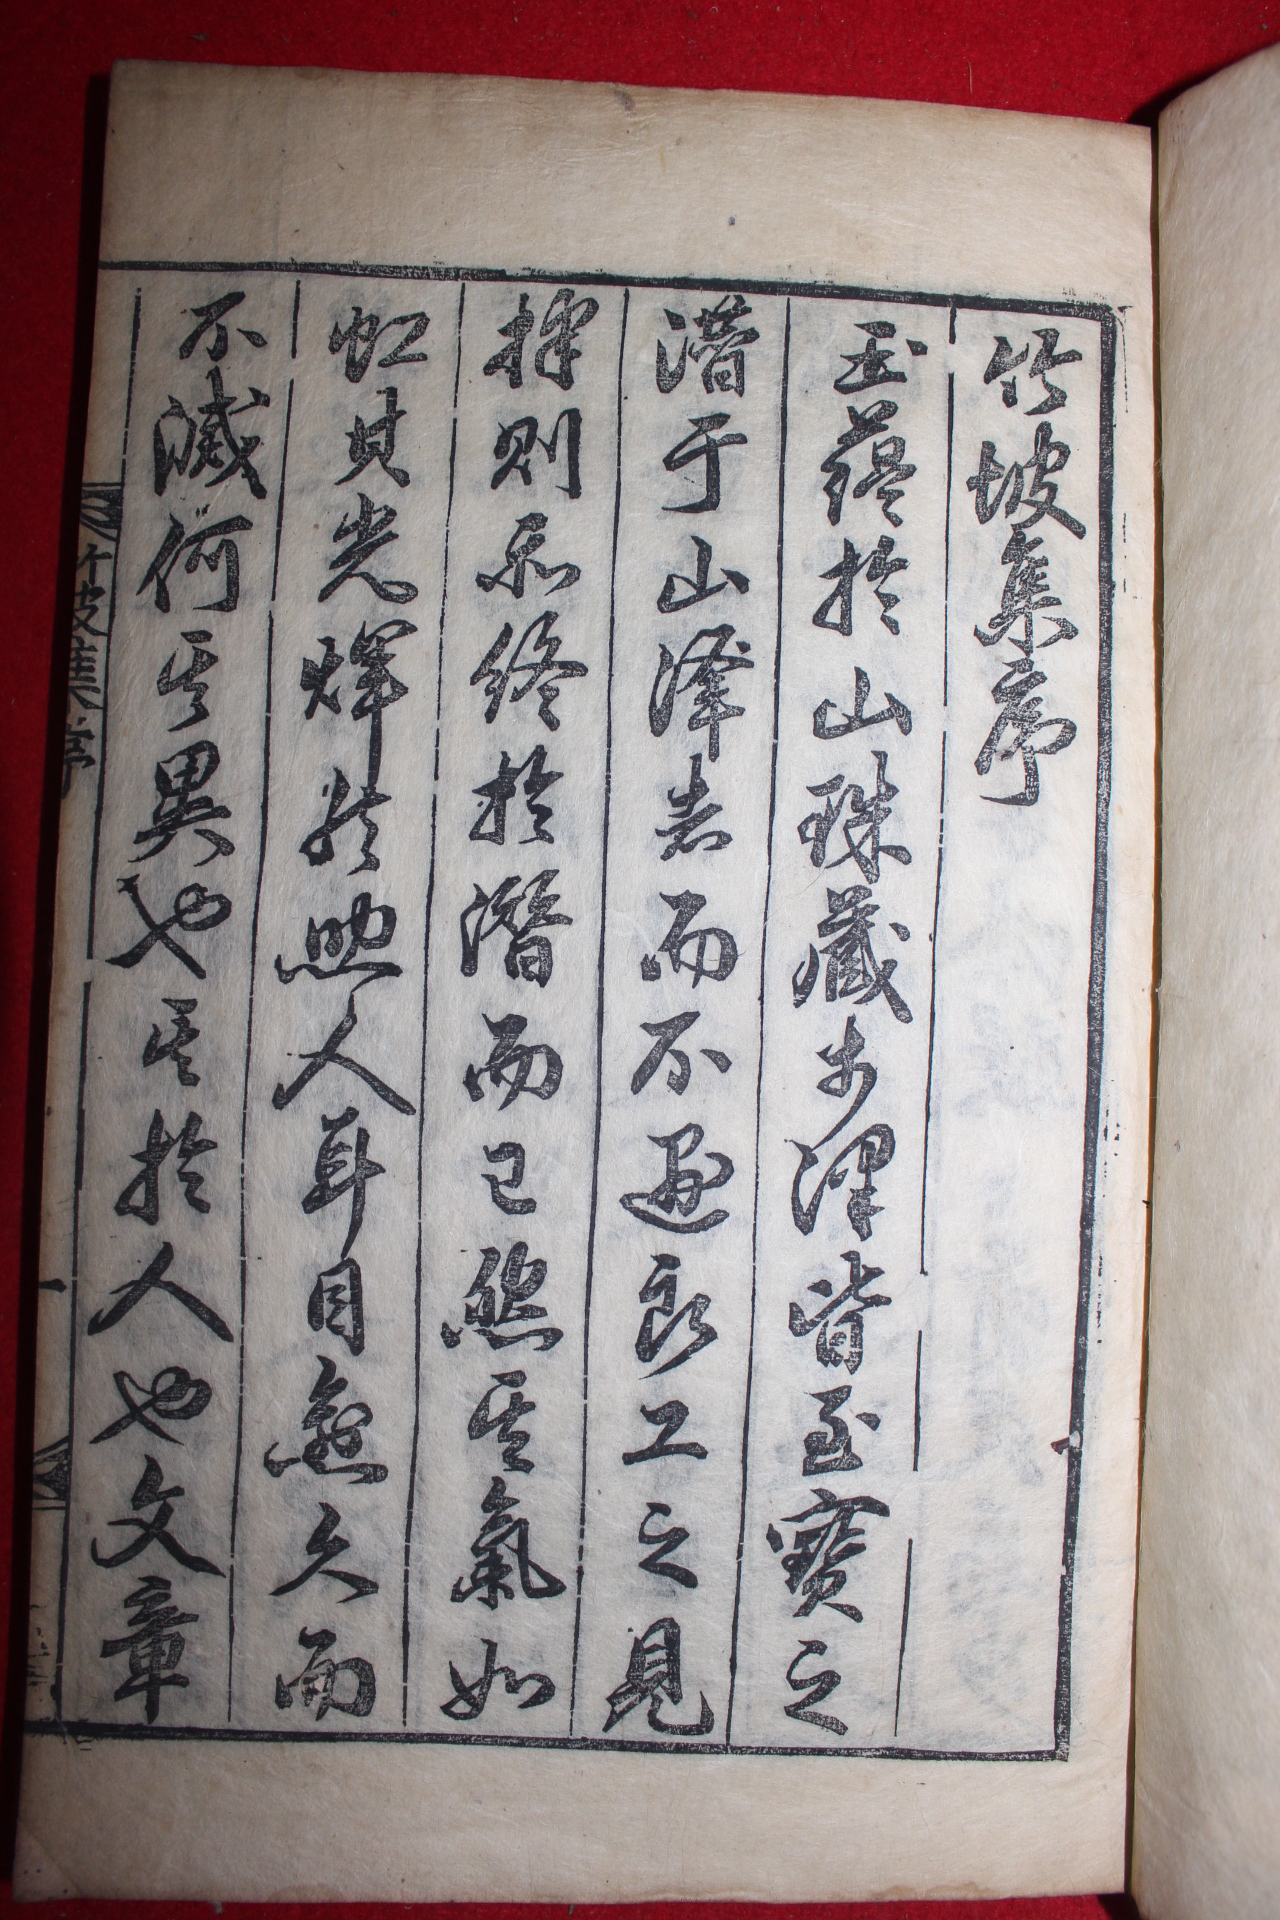 竹坡集序
玉蘊於山珠藏于澤皆至寶之
潛于山澤者而不遇良工之見
擇則示終於潛而已然其氣如
虹其光輝於照人耳目愈久而
不滅何其異也其於人也文章
竹坡集序
一